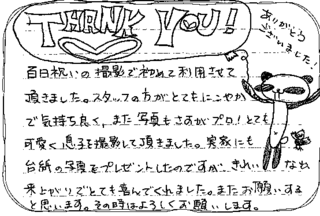 THANK YOU!
ありがとう
ございました!
百日祝いの撮影で初めて利用させて
頂きました。スタッフの方がとてもにこやか
で気持ち良く、また写真もさすがプロ!とても
可愛く息子を撮影して頂きました。実家にも
台紙の写真をプレゼントしたのですが、きれいな
来上がりでとても喜んでくれました。またお願いする
と思います。その時はよろしくお願いします。